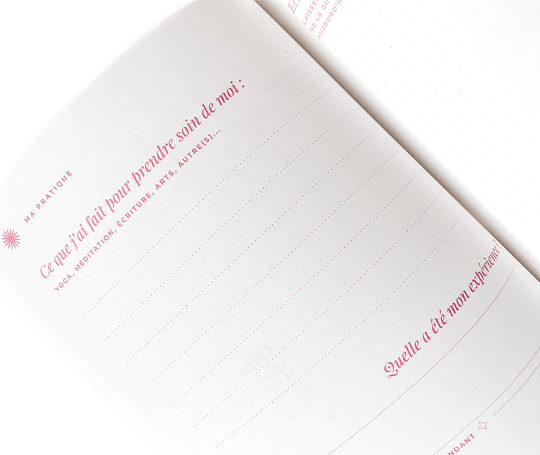 MA PRATIQUE
Ce que j'ai fait pour prendre soin de moi :
YOGA, MÉDITATION, ÉCRITURE, ARTS, AUTRE(S)...
Quelle a été mon expérience